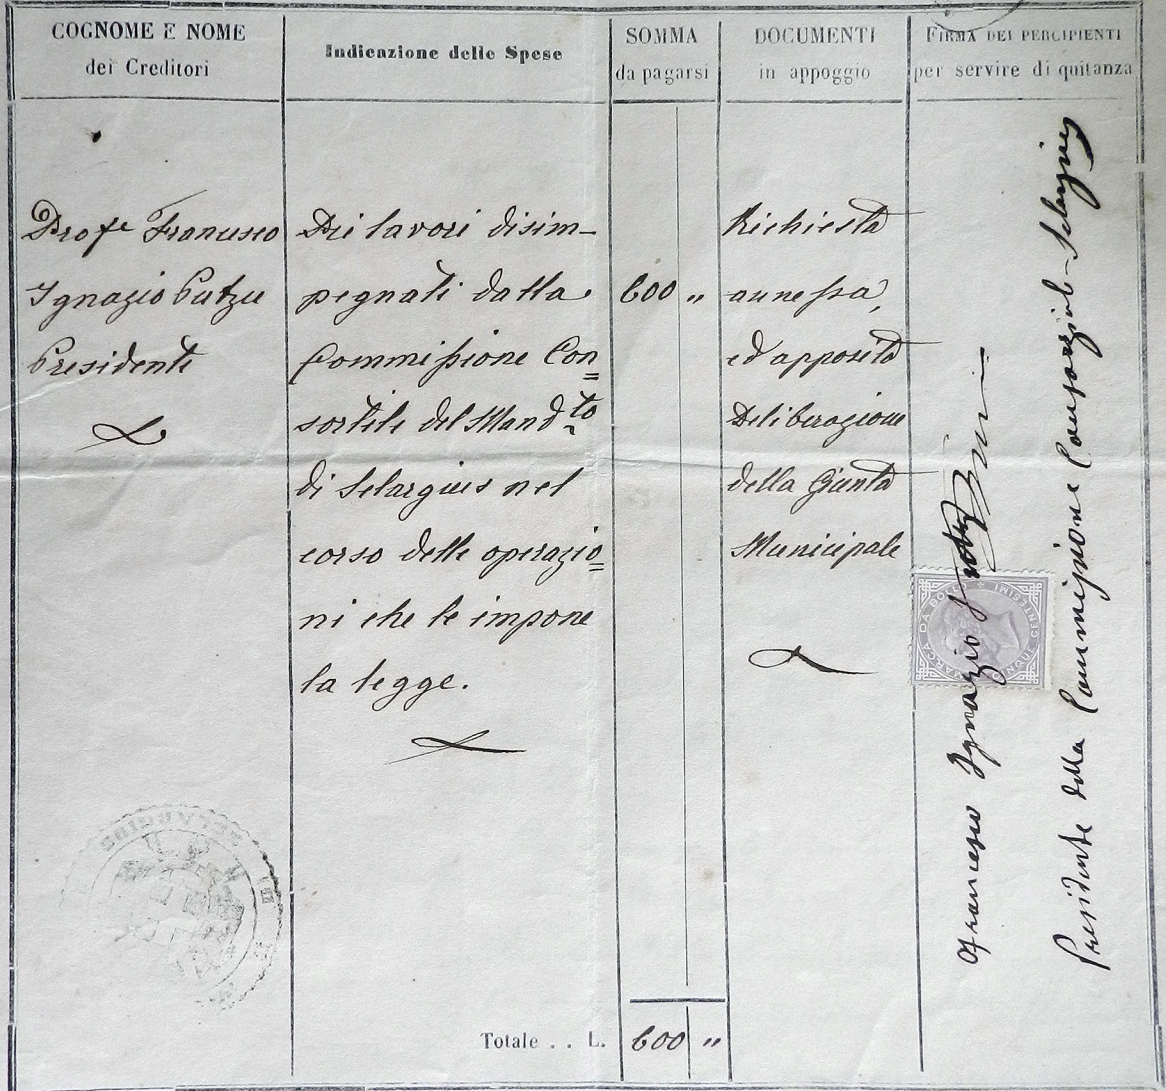 COGNOME E NOME
dei Creditori
Indicazione delle Spese
SOMMA
da pagarsi
DOCUMENTI
in appoggio
FIRMA DEI PERCIPIENTI
per servire di quitanza
Profe Francesco
Ignazio Putzu
Presidente
Dei lavori disim-
pegnati dalla
Commissione Con=
sortile del Mandto
di Selargius nel
corso delle operazio=
ni che le impone
la legge.
600 "
Richiesta
annessa,
ed apposita
Deliberazione
della Giunta
Municipale
Francesco Ignazio
Presidente della Commissione Consorziale Selargius
MARCA DA BOLLO
CENTESIMI
SELARGIUS
Totale . . L. 600 "